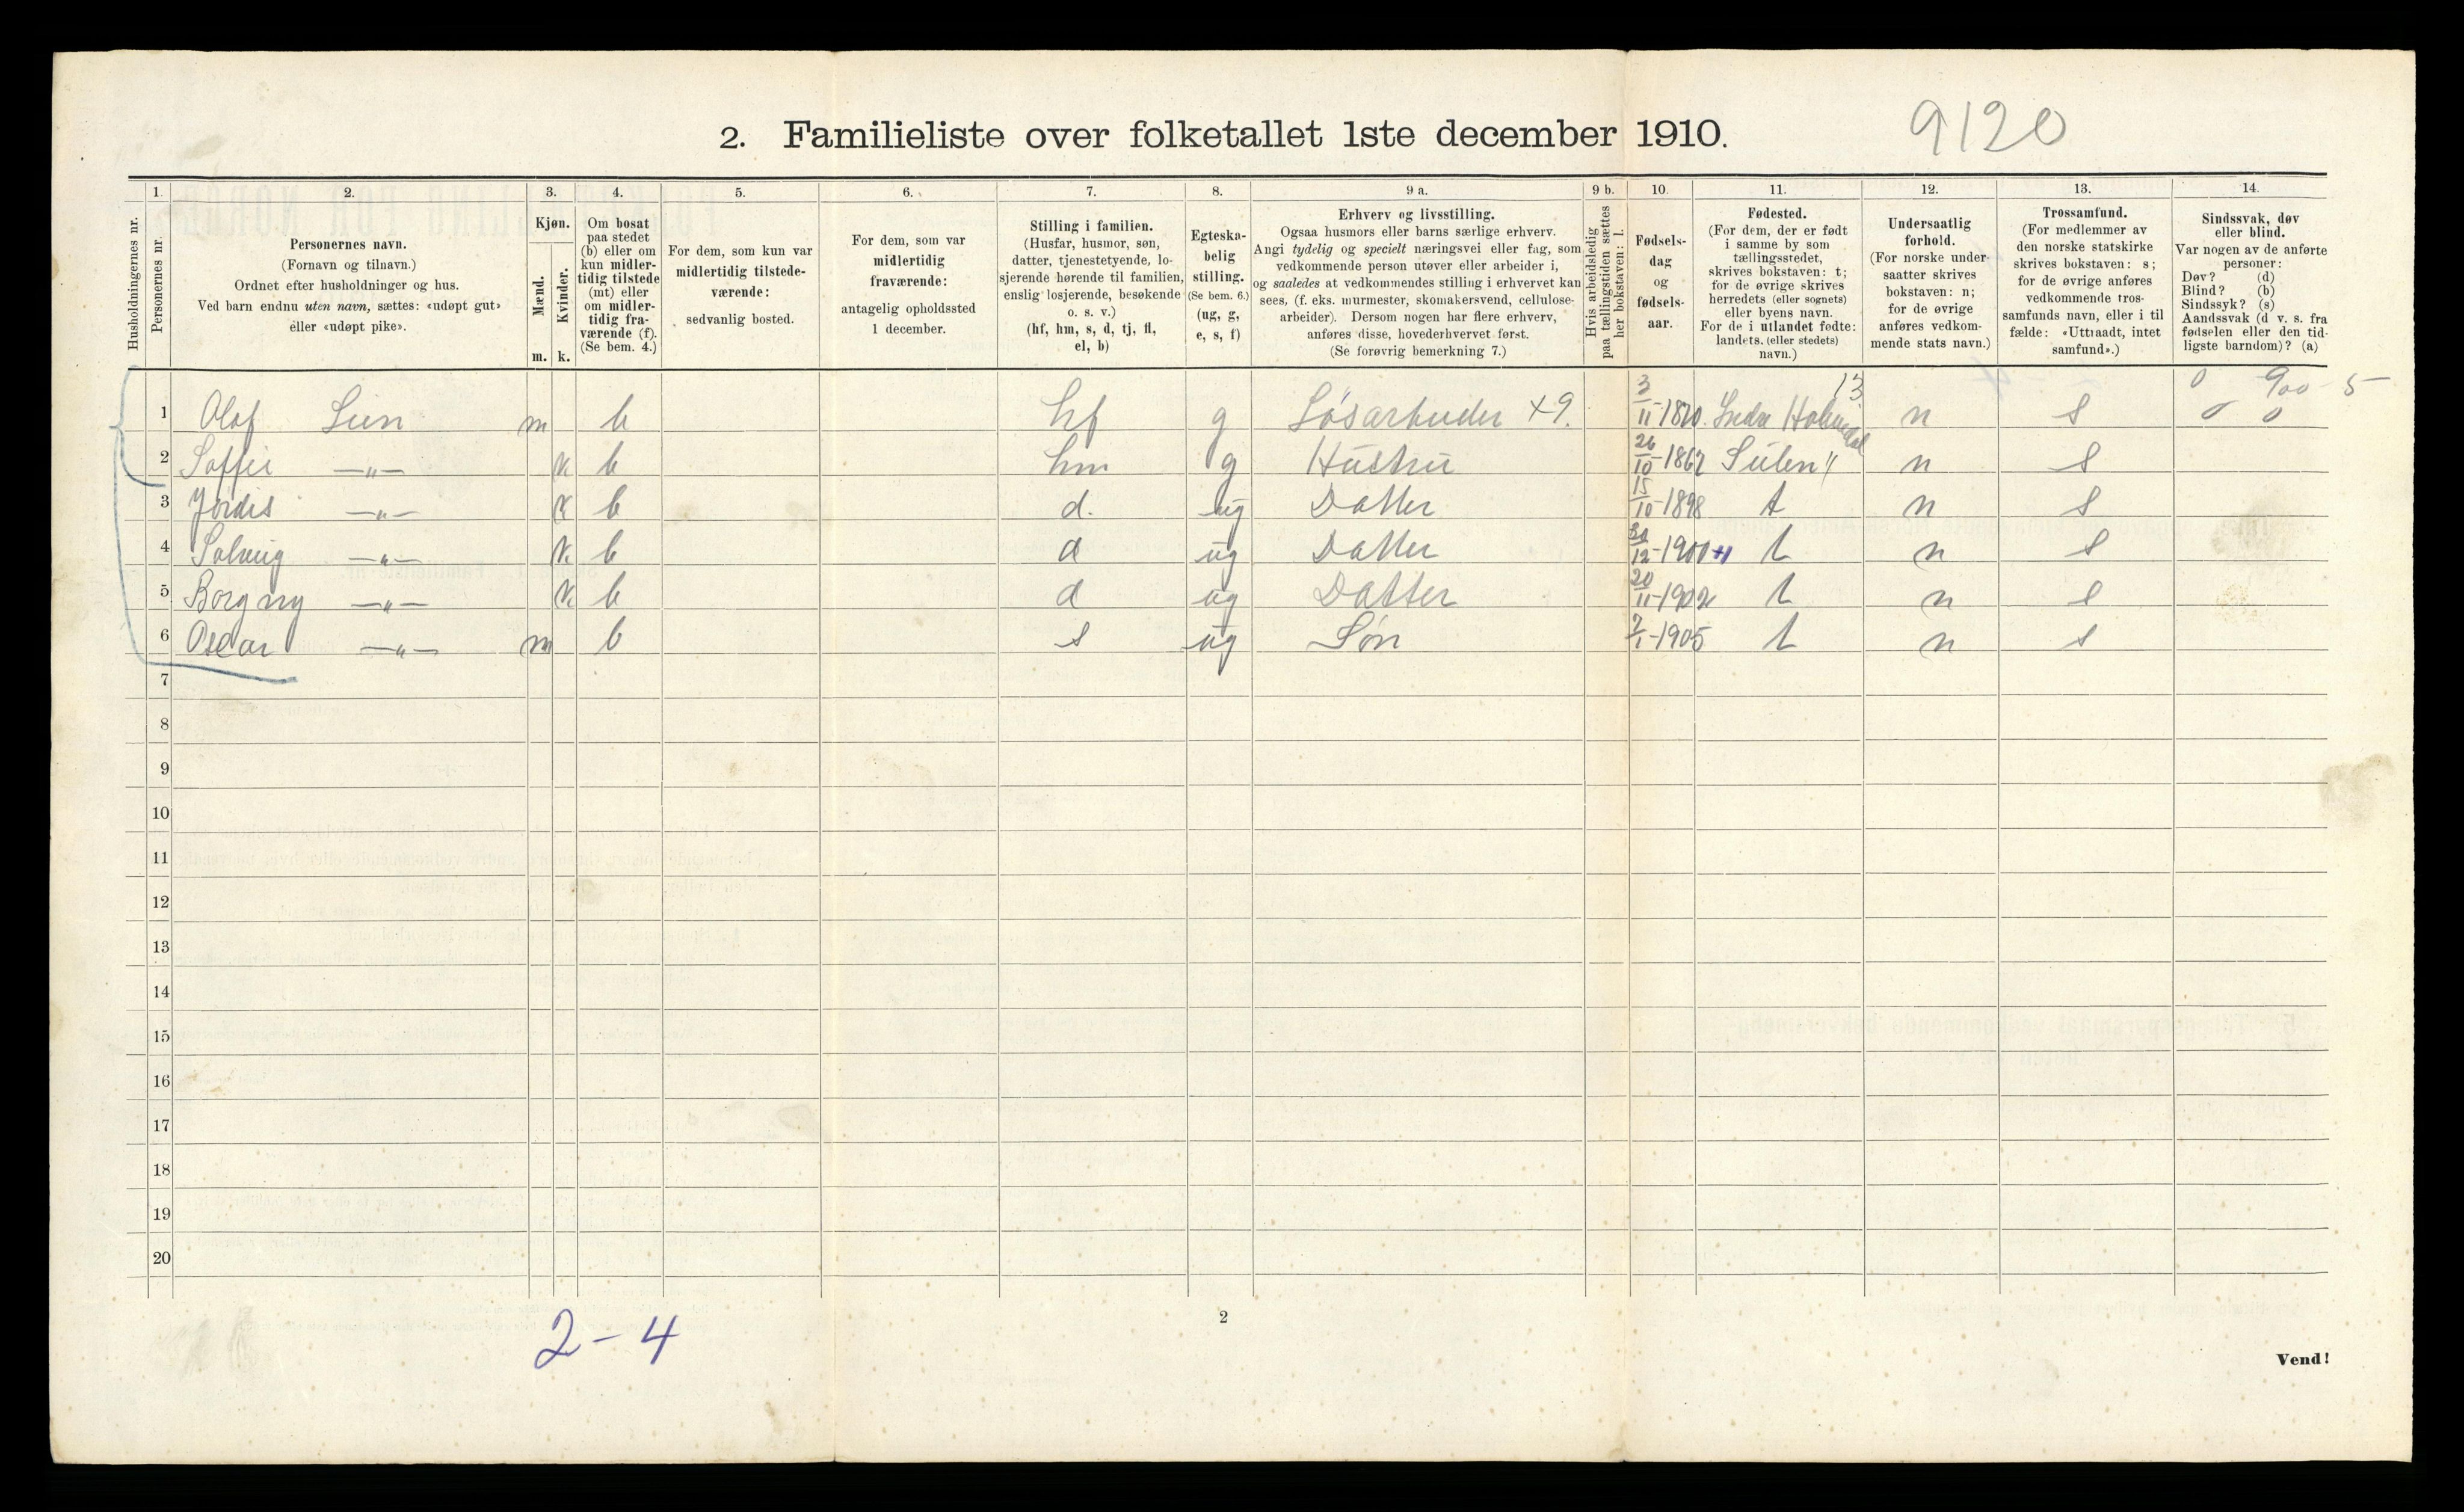 2. Familieliste over folketallet 1ste december 1910.
9120
1. 2. 3. 4. 5. 6. 7. 8. 9 a. 9 b. 10. 11. 12. 13. 14.
Husholdningernes nr.
Personernes nr.
Personernes navn.
(Fornavn og tilnavn.)
Ordnet efter husholdninger og hus.
Ved barn endnu uten navn, sættes: «udøpt gut»
eller «udøpt pike».
Kjøn.
Mænd.
Kvinder.
m. k.
Om bosat
paa stedet
(b) eller om
kun midler-
tidig tilstede
(mt) eller
om midler-
tidig fra-
værende (f).
(Se bem. 4.)
For dem, som kun var
midlertidig tilstede-
værende:
sedvanlig bosted.
For dem, som var
midlertidig
fraværende:
antagelig opholdssted
1 december.
Stilling i familien.
(Husfar, husmor, søn,
datter, tjenestetyende, lo-
sjerende hørende til familien,
enslig losjerende, besøkende
o. s. v.)
(hf, hm, s, d, tj, fl,
el, b)
Egteska-
belig
stilling.
(Se bem. 6.)
(ug, g,
e, s, f)
Erhverv og livsstilling.
Ogsaa husmors eller barns særlige erhverv.
Angi tydelig og specielt næringsvei eller fag, som
vedkommende person utøver eller arbeider i,
og saaledes at vedkommendes stilling i erhvervet kan
sees, (f. eks. murmester, skomakersvend, cellulose-
arbeider). Dersom nogen har flere erhverv,
anføres disse, hovederhvervet først.
(Se forøvrig bemerkning 7.)
Hvis arbeidsledig
paa tællingstiden sættes
her bokstaven: l.
Fødsels-
dag
og
fødsels-
aar.
Fødested.
(For dem, der er født
i samme by som
tællingsstedet,
skrives bokstaven: t;
for de øvrige skrives
herredets (eller sognets)
eller byens navn.
For de i utlandet fødte:
landets (eller stedets)
navn.)
Undersaatlig
forhold.
(For norske under-
saatter skrives
bokstaven: n;
for de øvrige
anføres vedkom-
mende stats navn.)
Trossamfund.
(For medlemmer av
den norske statskirke
skrives bokstaven: s;
for de øvrige anføres
vedkommende tros-
samfunds navn, eller i til
fælde: «Uttraadt, intet
samfund».)
Sindssvak, døv
eller blind.
Var nogen av de anførte
personer:
Døv? (d)
Blind? (b)
Sindssyk? (s)
Aandssvak (d v. s. fra
fødselen eller den tid-
ligste barndom)? (a)
13 0 900-5
1 Olaf Lien m b hf g Løsarbeider x9. 3/11-1870. Indre Holmedal n s 0 0
2 Soffie —„— k b hm g Hustru 26/10-1867 Sulen " n s
3 Jordis —„— k b d. ug Datter 15/10-1898 t n s
4 Solveig —„— k b d ug Datter 30/12-1900 t n s
5 Borgny —„— k b d ug Datter 20/11-1902 t n s
6 Oscar —„— m b s ug Søn 7/1-1905 t n s
7
8
9
10
11
12
13
14
15
16
17
18
19
20
2-4
2
Vend!